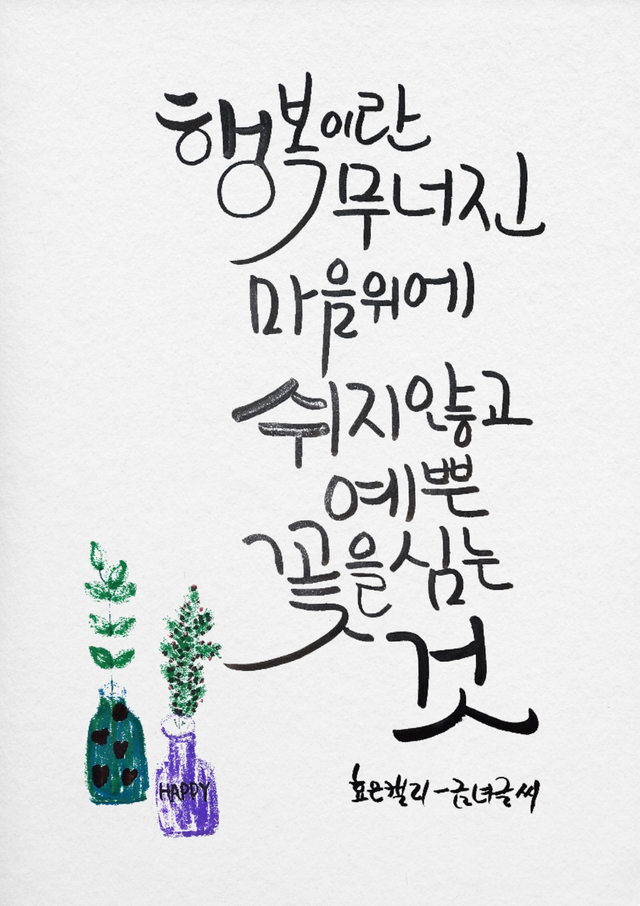 행복이란
무너진
마을위에
쉬지않고
예쁜
꽃을심는
것
HAPPY
효은캘리-금녀글씨